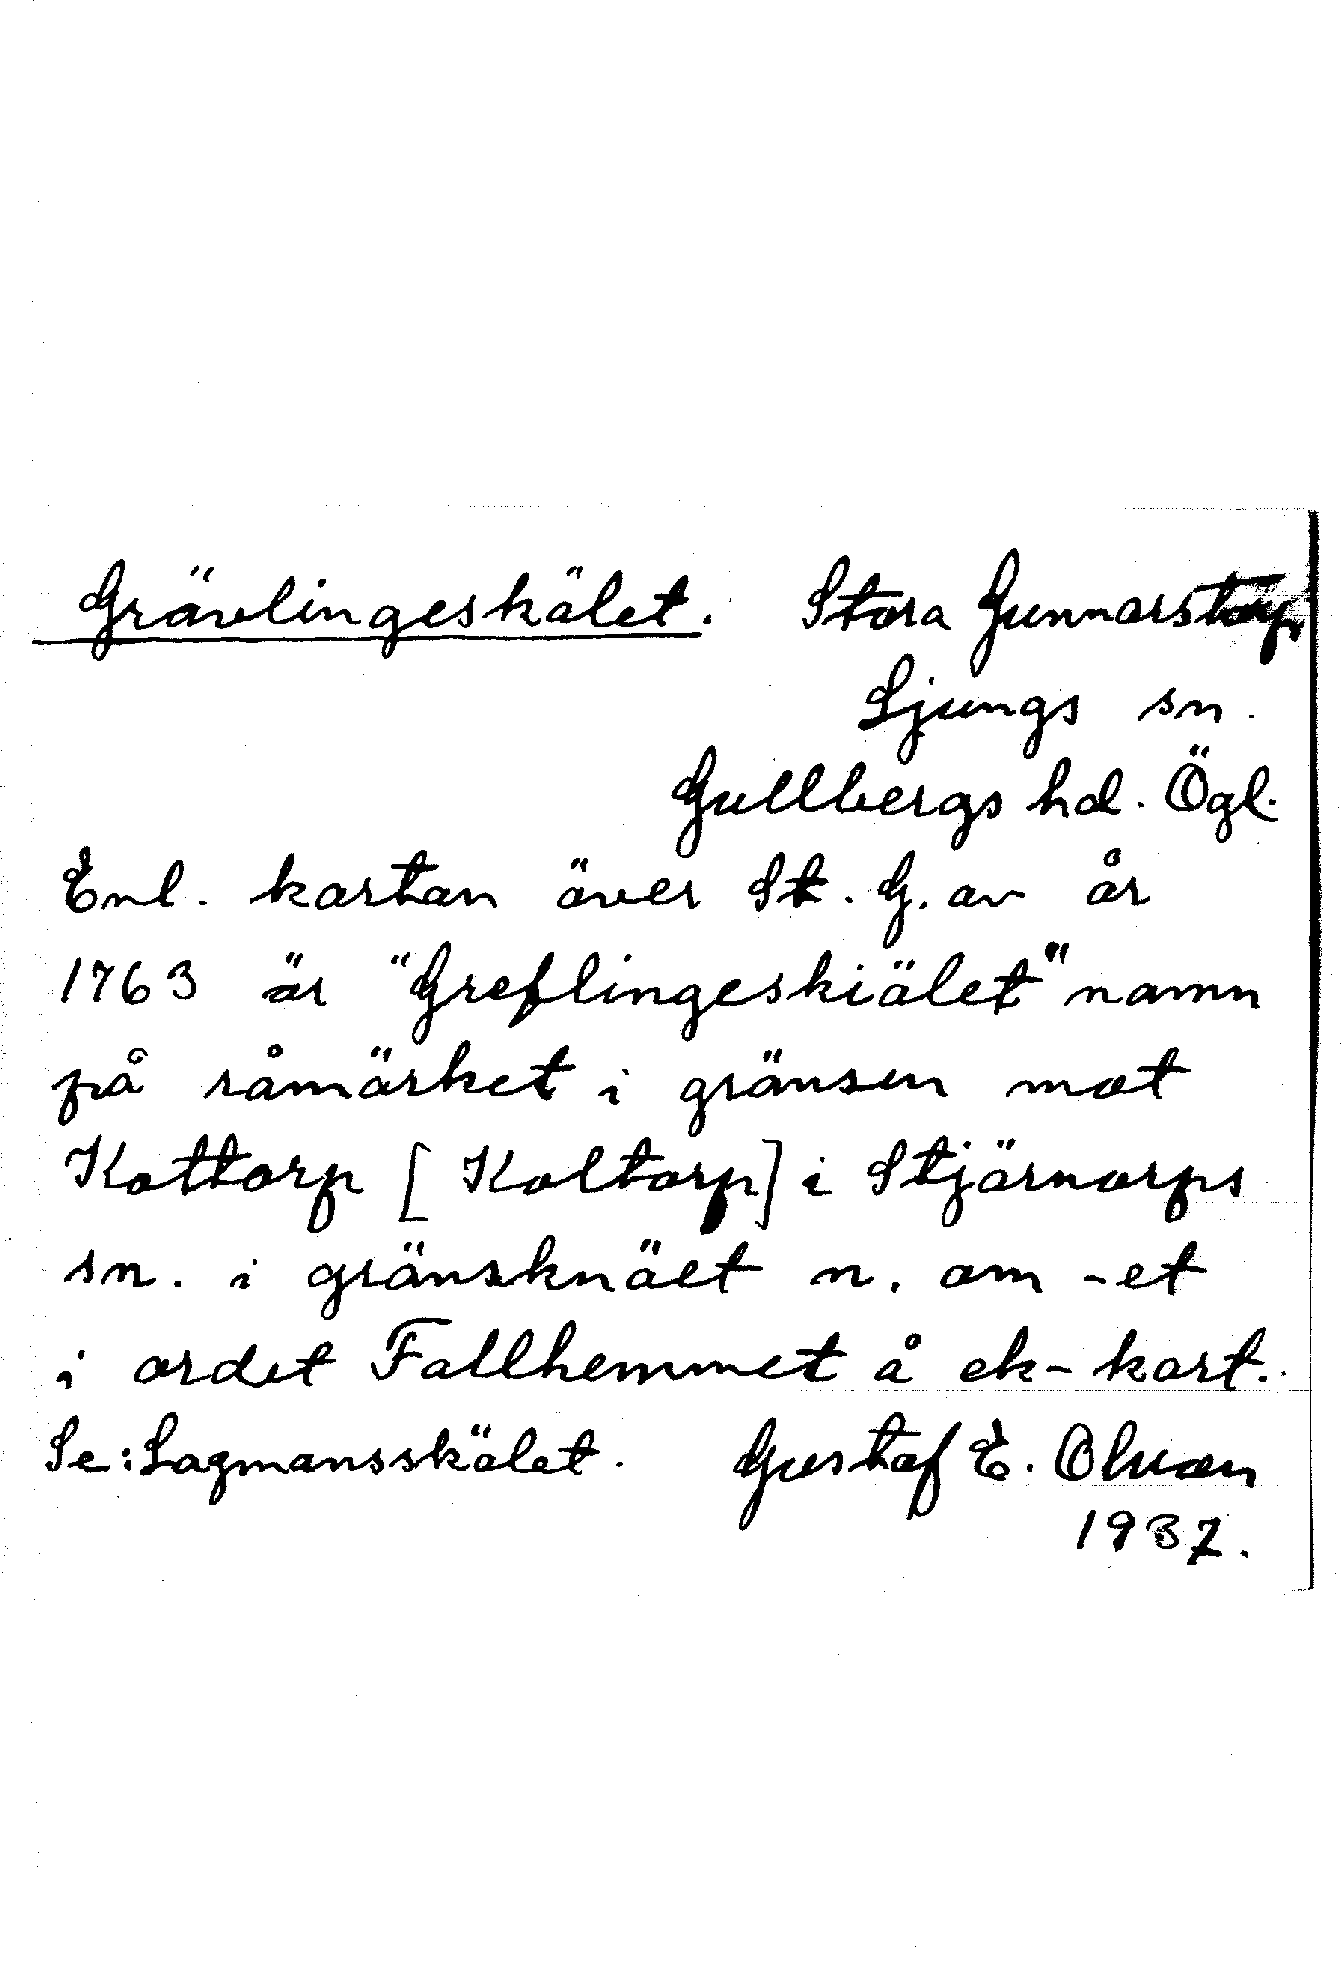 Grävlingeskälet. Stora Gunnarstorp
Ljungs sn.
Gullbergs hd. Ögl.
Enl. kartan över St. G. av år
1763 är "Greflingeskiälet" namn
på råmärket i gränsen mot
Kottorp [Koltorp] i Stjärnorps
sn. i gränsknäet n. om -et
i ordet Fallhemmet å ek-kart.
Se: Lagmansskälet. Gustaf E. Olsson
1937.